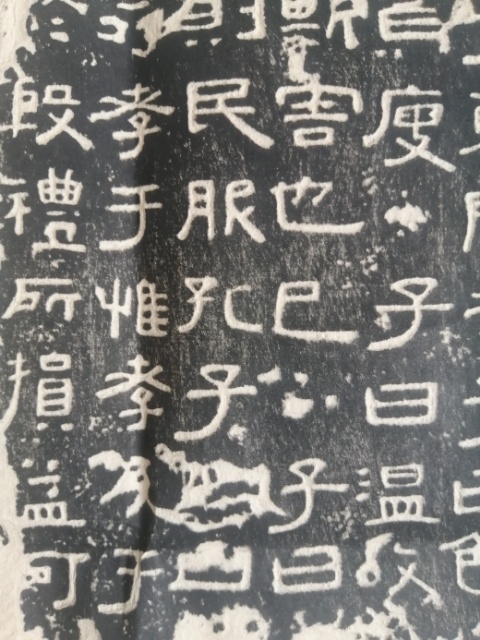 廋·子曰温故
害也已·子曰
則民服孔子曰
孝于惟孝友于
殷禮所損益可